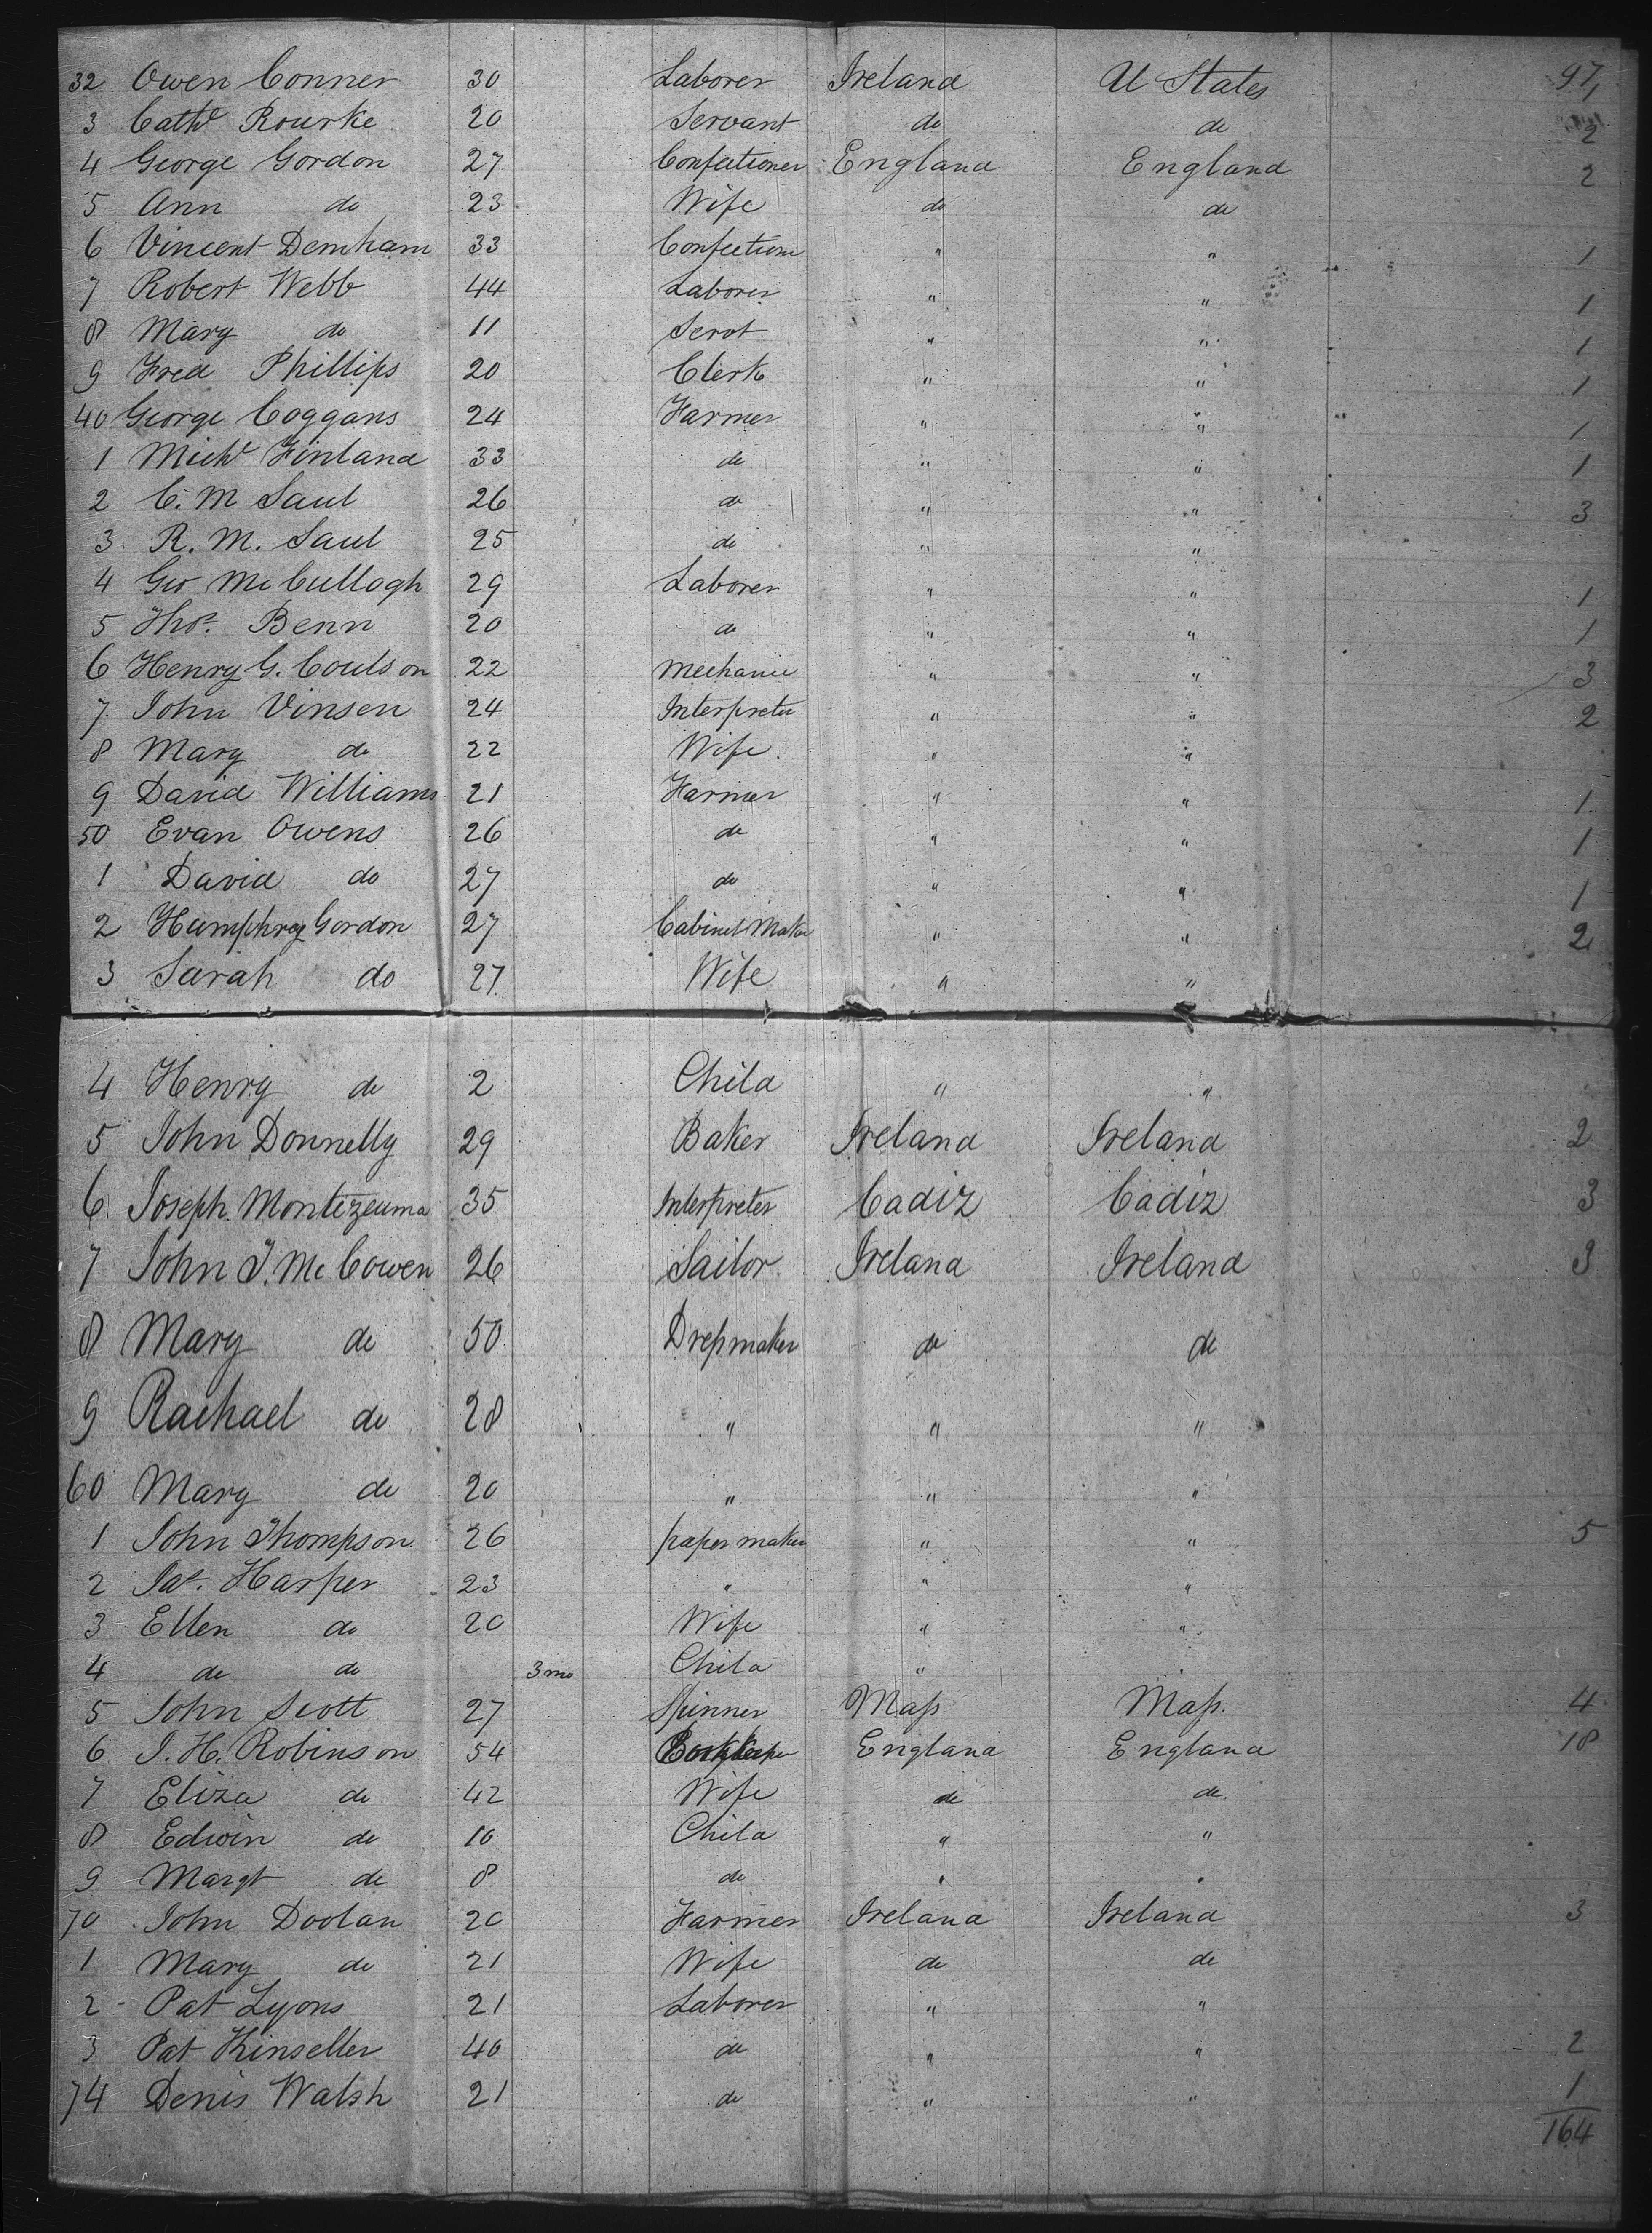 32 Owen Conner 30 Laborer Ireland U States 97
1
3 Cathe Rourke 20 Servant do do 2
4 George Gordon 27 Confectioner England England 2
5 Ann do 23 Wife do do
6 Vincent Demham 33 Confectione " " 1
7 Robert Webb 44 Laborer " " 1
8 Mary do 11 Servt " " 1
9 Fred Phillips 20 Clerk " " 1
40 George Coggans 24 Farmer " " 1
1 Michl Finland 33 do " " 1
2 C. M Saul 26 do " " 3
3 R. M. Saul 25 do " "
4 Geo McCullogh 29 Laborer " " 1
5 Thos. Benn 20 do " " 1
6 Henry G. Coulson 22 Mechanic " " 3
7 John Vinsen 24 Interpreter " " 2
8 Mary do 22 Wife " "
9 David Williams 21 Farmer " " 1
50 Evan Owens 26 do " " 1
1 David do 27 do " " 1
2 Humphrey Gordon 27 Cabinet Maker " " 2
3 Sarah do 27 Wife " "
4 Henry do 2 Child " "
5 John Donnelly 29 Baker Ireland Ireland 2
6 Joseph Montezeuma 35 Interpreter Cadiz Cadiz 3
7 John J. McCowen 26 Sailor Ireland Ireland 3
8 Mary do 50 Dressmaker do do
9 Rachael do 28 " " "
60 Mary do 20 " " "
1 John Thompson 26 paper maker " " 5
2 Jas. Harper 23 " " "
3 Ellen do 20 Wife " "
4 do do 3 mo Child " "
5 John Scott 27 Spinner Mass Mass. 4
6 J. H. Robinson 54 Bookkeeper England England 18
7 Eliza do 42 Wife do do
8 Edwin do 10 Child " "
9 Margt do 8 do " "
70 John Doolan 20 Farmer Ireland Ireland 3
1 Mary do 21 Wife do do
2 Pat Lyons 21 Laborer " "
3 Pat Kinseller 40 do " " 2
74 Denis Walsh 21 do " " 1
164